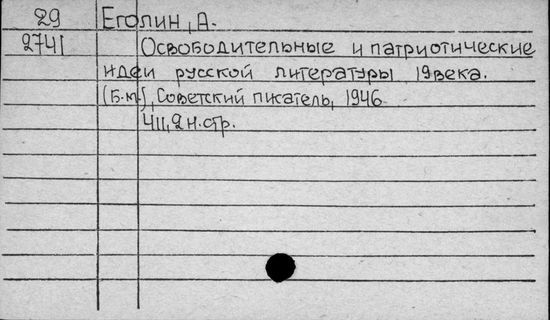 29 Еголин, А.
2741 Освободительные и патриотические
идеи русской литературы 19 века.
(Б.м.), Советский писатель, 1946
411, 2 н. стр.